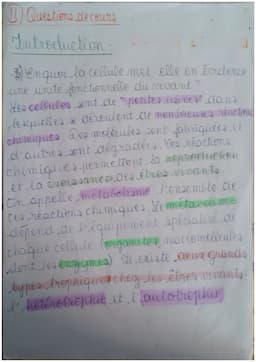 II) Questions de cours
Introduction:
En quoi la cellule met elle en Evidence
une unité fonctionnelle du vivant"
Les cellules sont de "petites usines" dans
lesquelles se déroulent de nombreuses réactions
chimiques. Des molécules sont fabriquées et
d'autres sont dégradées. Ces réactions
chimiques permettent la reproduction
et la croissance des êtres vivants.
On appelle métabolisme l'ensemble de
ces réactions chimiques. Le métabolisme
dépend de l'équipement spécialisé de
chaque cellule (organites, macromolécules
dont les enzymes) Il existe deux grands
types trophiques chez les êtres vivants:
l'hétérotrophie et l'autotrophie